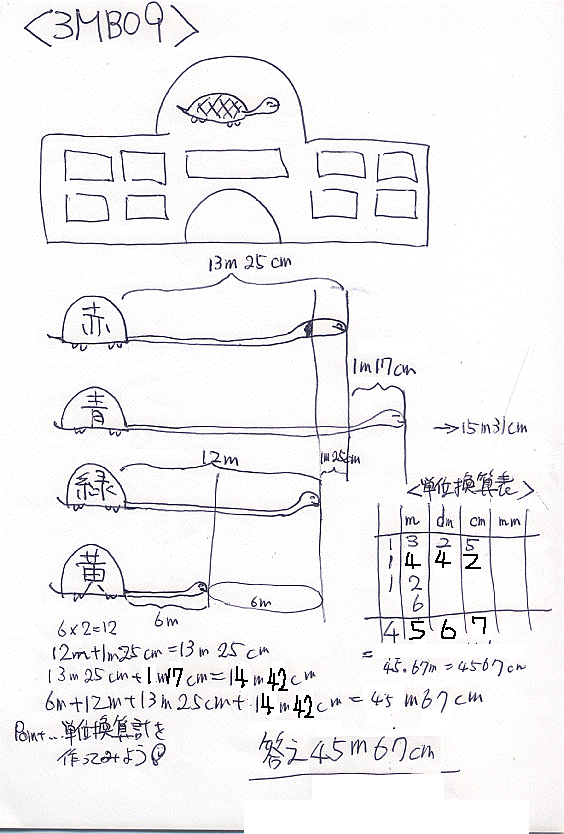 <3MB09>
13m 25cm
赤
1m17cm
青
→15m31cm
12m
1m25cm
緑
<単位換算表>
m dm cm mm
1 3 2 5
1 4 4 2
1 2
6
4 5 6 7
黄
6m
6m
6×2=12
12m+1m25cm=13m 25cm
13m 25cm+1m17cm=14m42cm
= 45.67m=4567cm
6m+12m+13m25cm+14m42cm=45m67cm
Point…単位換算計を
作ってみよう
答え45m67cm